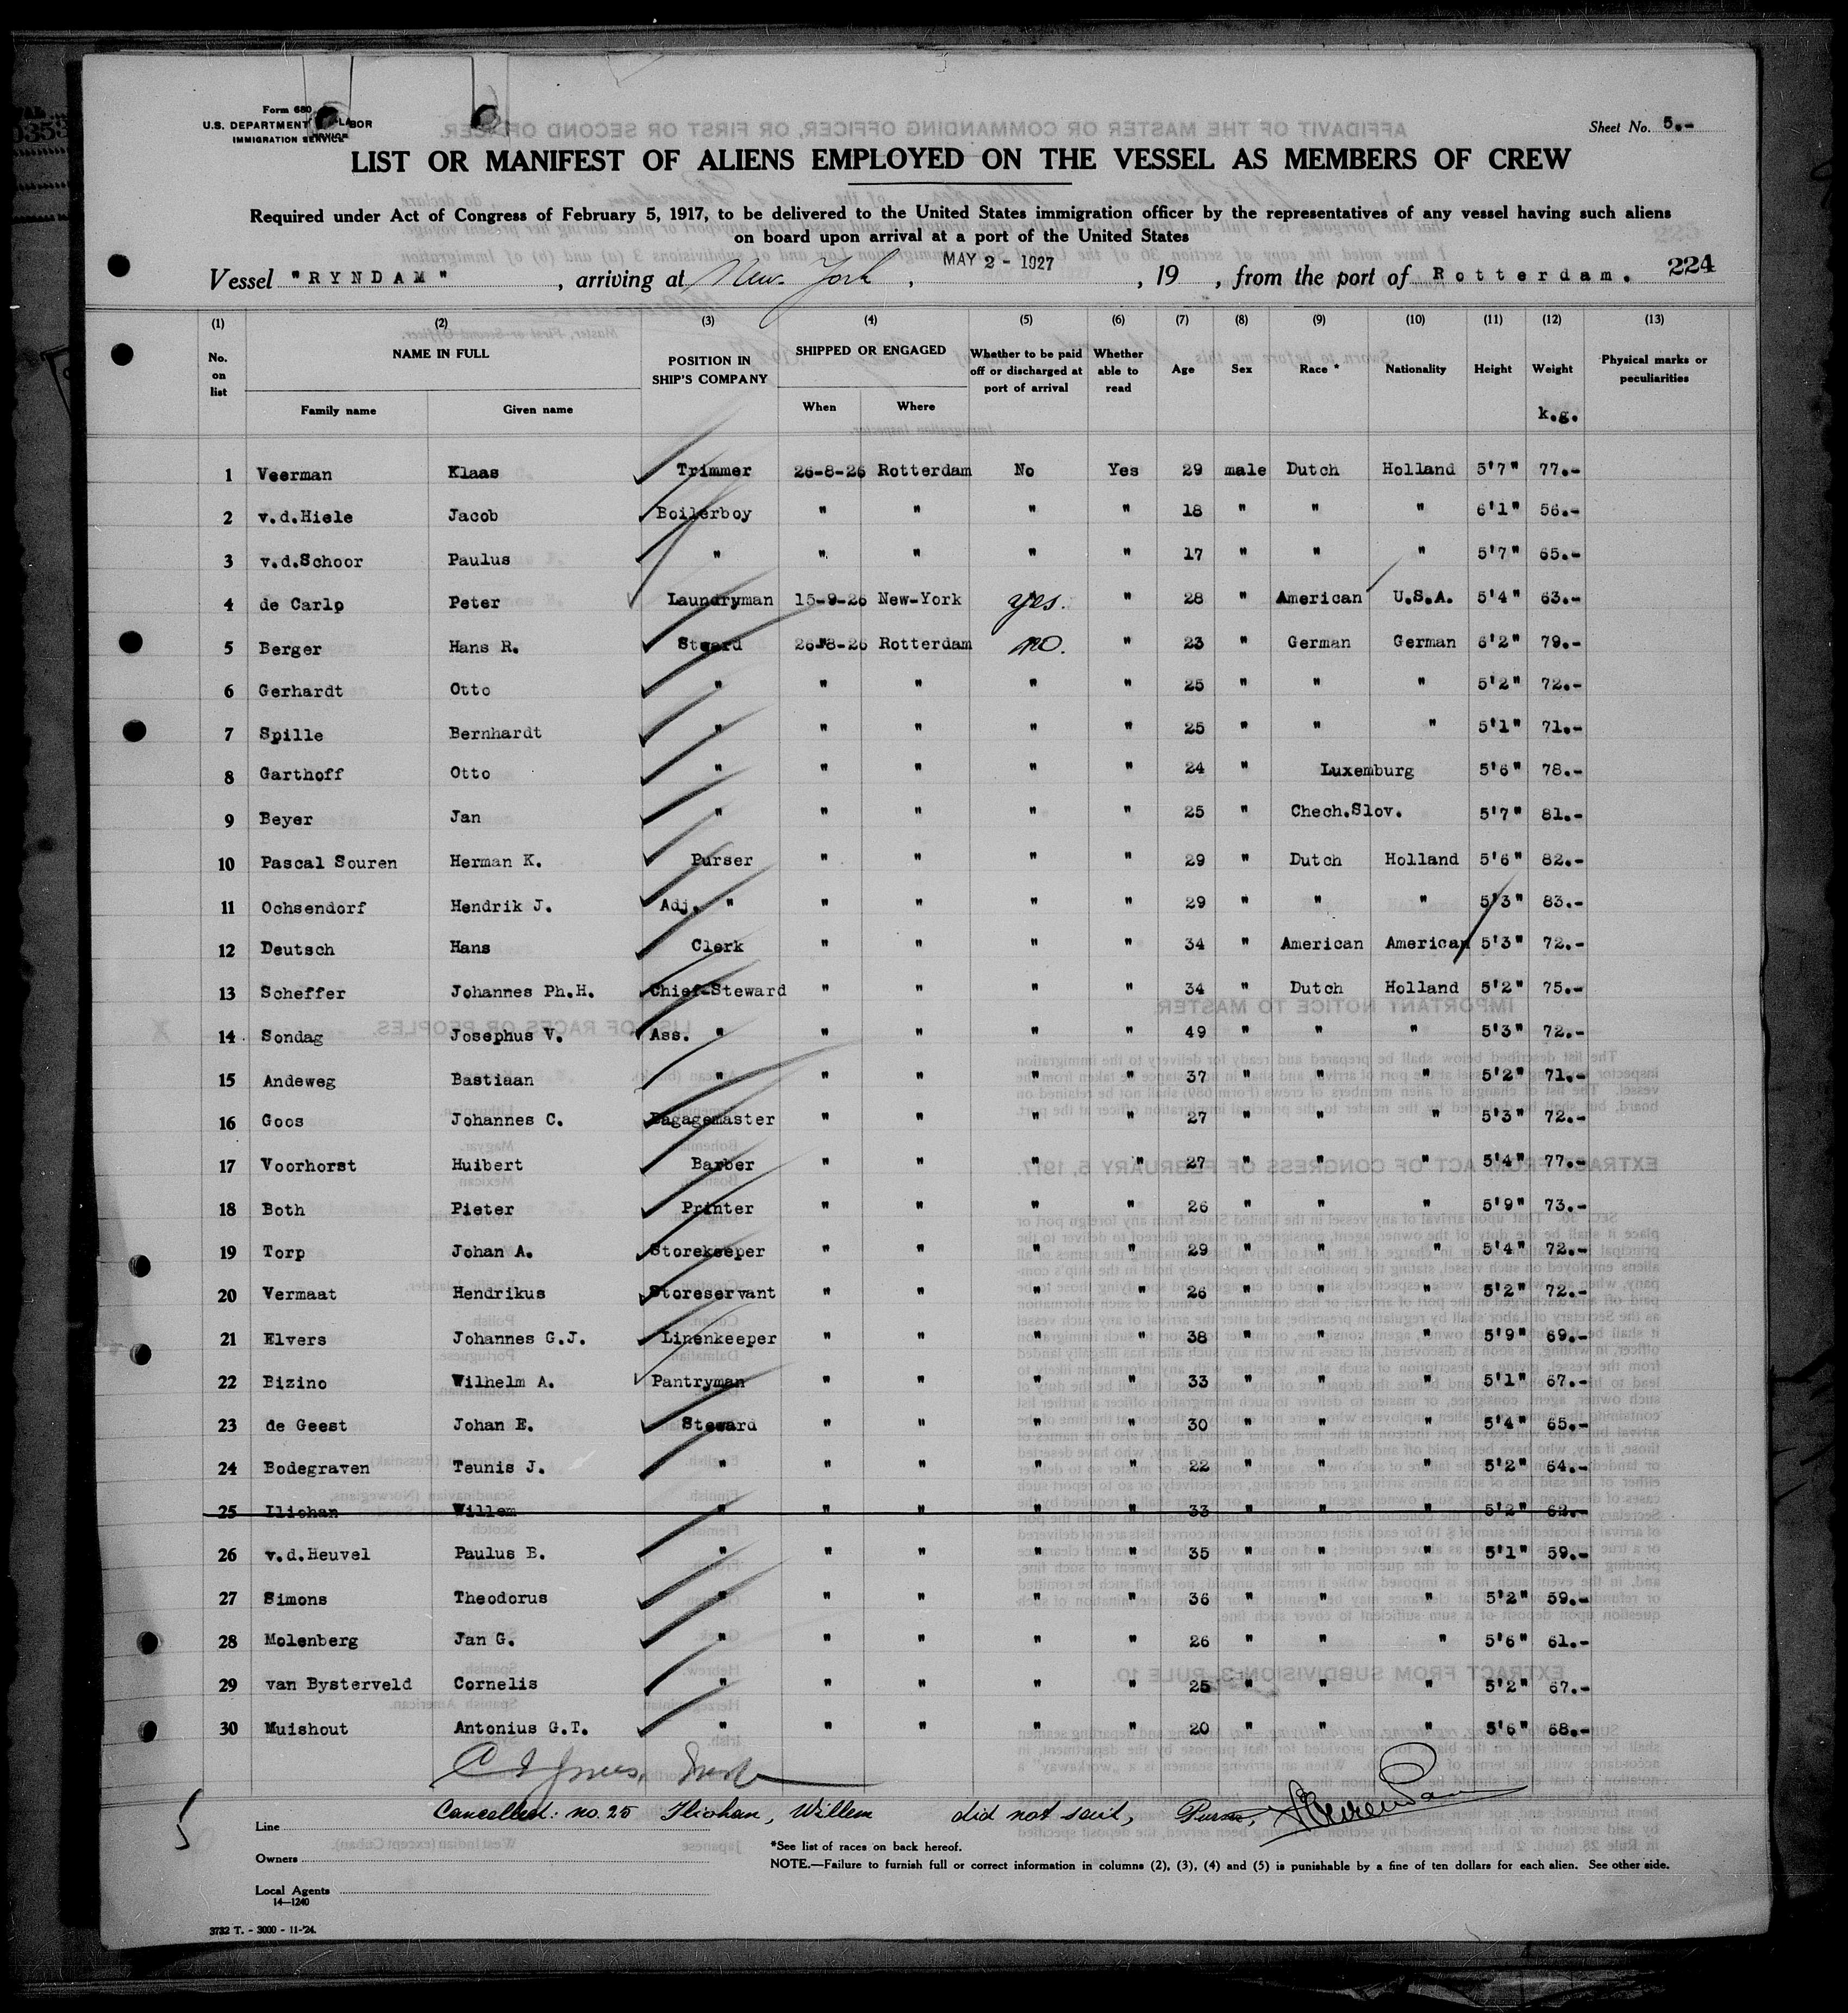 Form 680
U.S. DEPARTMENT LABOR
IMMIGRATION SERVICE
Sheet No. 5.-
LIST OR MANIFEST OF ALIENS EMPLOYED ON THE VESSEL AS MEMBERS OF CREW
Required under Act of Congress of February 5, 1917, to be delivered to the United States immigration officer by the representatives of any vessel having such aliens
on board upon arrival at a port of the United States
Vessel "RYNDAM", arriving at New York, MAY 2 - 1927, 19 , from the port of Rotterdam. 224
(1) (2) (3) (4) (5) (6) (7) (8) (9) (10) (11) (12) (13)
No. on list NAME IN FULL POSITION IN SHIP'S COMPANY SHIPPED OR ENGAGED Whether to be paid off or discharged at port of arrival Whether able to read Age Sex Race * Nationality Height Weight Physical marks or peculiarities
Family name Given name When Where k.g.
1 Veerman Klaas Trimmer 26-8-26 Rotterdam No Yes 29 male Dutch Holland 5'7" 77.-
2 v.d.Hiele Jacob Boilerboy " " " " 18 " " " 6'1" 56.-
3 v.d.Schoor Paulus " " " " " 17 " " " 5'7" 65.-
4 de Carlo Peter Laundryman 15-9-26 New-York yes. " 28 " American U.S.A. 5'4" 63.-
5 Berger Hans R. Steward 26-8-26 Rotterdam no. " 23 " German German 6'2" 79.-
6 Gerhardt Otto " " " " " 25 " " " 5'2" 72.-
7 Spille Bernhardt " " " " " 25 " " " 5'1" 71.-
8 Garthoff Otto " " " " " 24 " Luxemburg 5'6" 78.-
9 Beyer Jan " " " " " 25 " Chech.Slov. 5'7" 81.-
10 Pascal Souren Herman K. Purser " " " " 29 " Dutch Holland 5'6" 82.-
11 Ochsendorf Hendrik J. Adj. " " " " " 29 " " " 5'3" 83.-
12 Deutsch Hans Clerk " " " " 34 " American American 5'3" 72.-
13 Scheffer Johannes Ph.H. Chief-Steward " " " " 34 " Dutch Holland 5'2" 75.-
14 Sondag Josephus V. Ass. " " " " " 49 " " " 5'3" 72.-
15 Andeweg Bastiaan " " " " " 37 " " " 5'2" 71.-
16 Goos Johannes C. Bagagemaster " " " " 27 " " " 5'3" 72.-
17 Voorhorst Huibert Barber " " " " 27 " " " 5'4" 77.-
18 Both Pieter Printer " " " " 26 " " " 5'9" 73.-
19 Torp Johan A. Storekeeper " " " " 29 " " " 5'4" 72.-
20 Vermaat Hendrikus Storeservant " " " " 26 " " " 5'2" 72.-
21 Elvers Johannes G.J. Linenkeeper " " " " 38 " " " 5'9" 69.-
22 Bizino Wilhelm A. Pantryman " " " " 33 " " " 5'1" 67.-
23 de Geest Johan E. Steward " " " " 30 " " " 5'4" 65.-
24 Bodegraven Teunis J. " " " " " 22 " " " 5'2" 64.-
25 Iliohan Willem " " " " " 33 " " " 5'2" 62.-
26 v.d.Heuvel Paulus B. " " " " " 35 " " " 5'1" 59.-
27 Simons Theodorus " " " " " 36 " " " 5'2" 59.-
28 Molenberg Jan G. " " " " " 26 " " " 5'6" 61.-
29 van Bysterveld Cornelis " " " " " 25 " " " 5'2" 67.-
30 Muishout Antonius G.T. " " " " " 20 " " " 5'6" 68.-
Cancelled: no. 25 Iliohan, Willem did not sail, Purser,
5
Line
*See list of races on back hereof.
Owners
NOTE.—Failure to furnish full or correct information in columns (2), (3), (4) and (5) is punishable by a fine of ten dollars for each alien. See other side.
Local Agents
14—1240
3732 T. - 3000 - 11-'24.